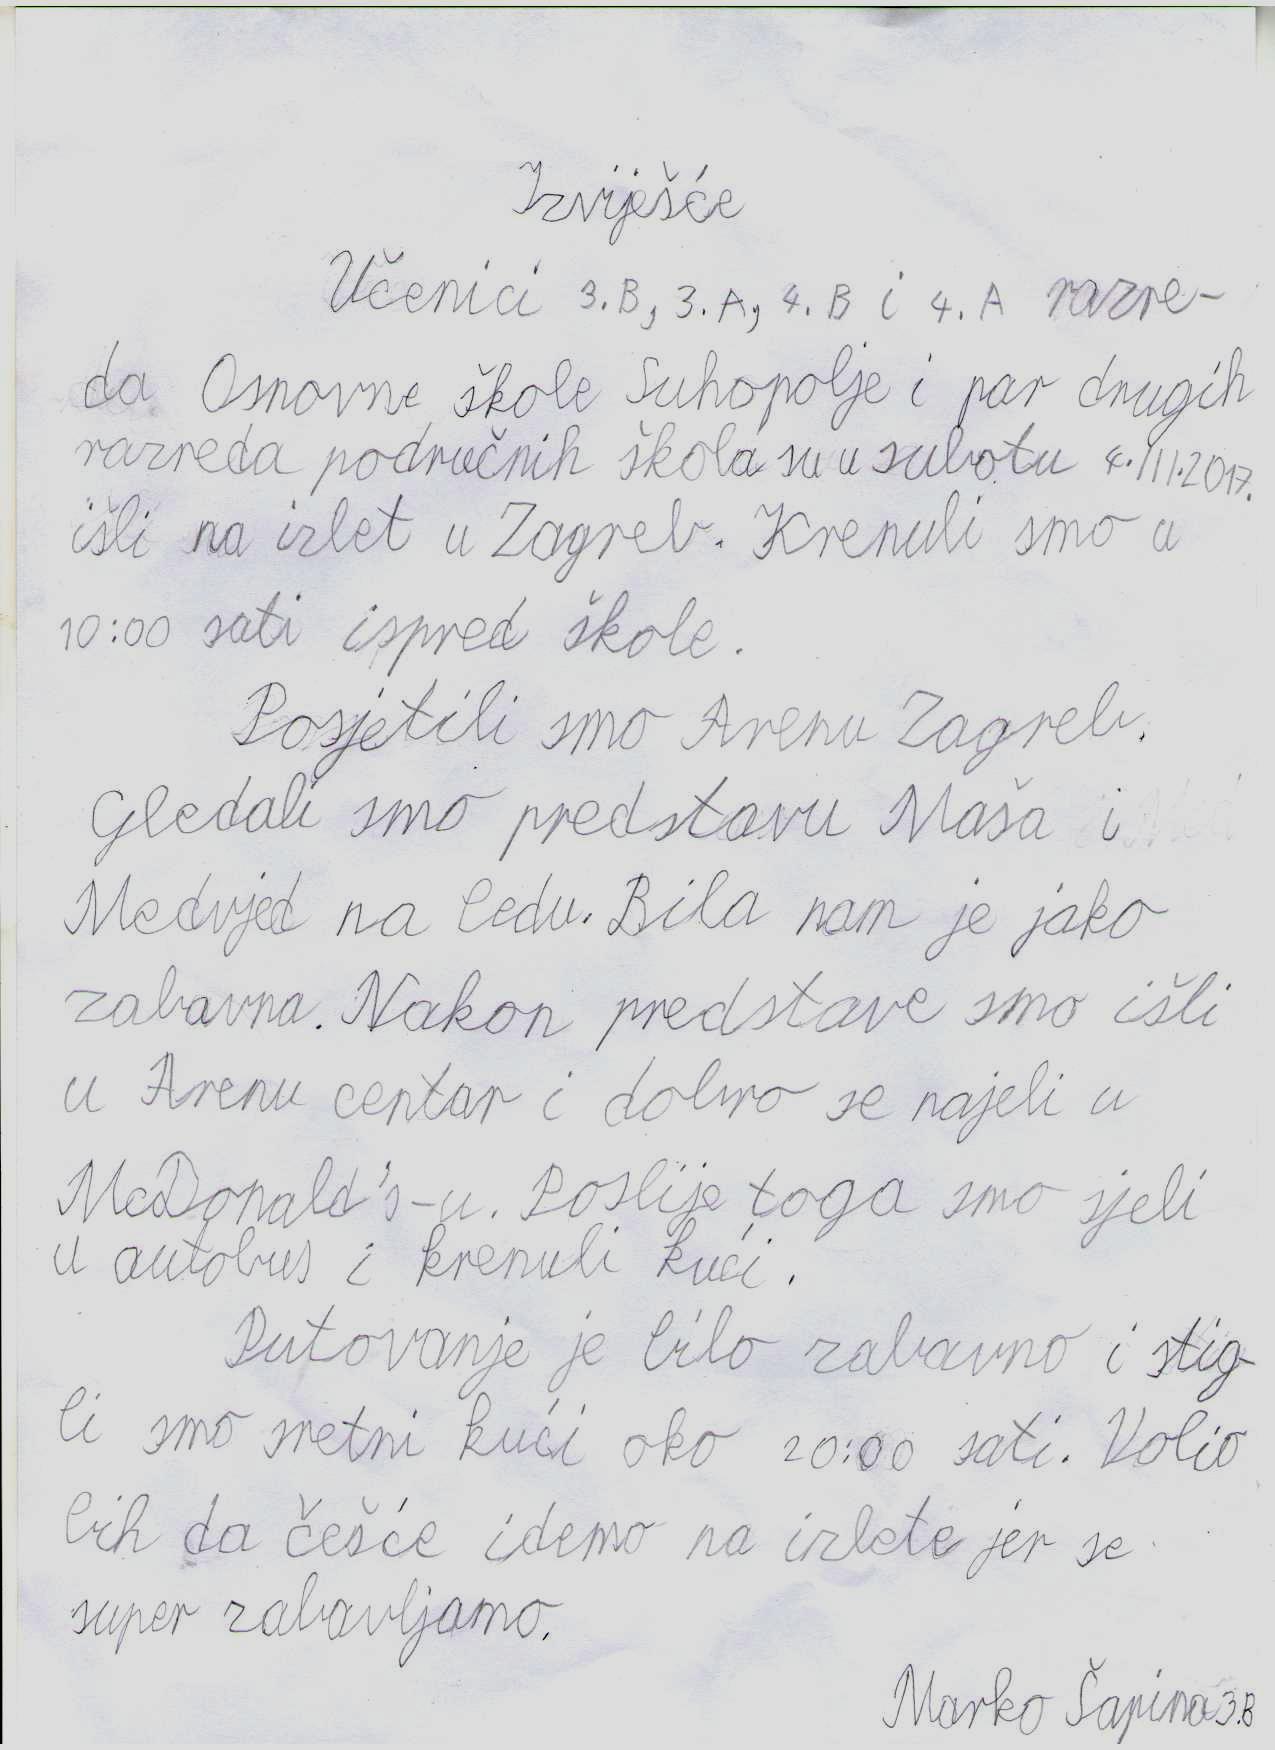 Izvješće
Učenici 3.B, 3.A, 4.B i 4.A razre-
da Osnovne škole Suhopolje i par drugih
razreda područnih škola su u subotu 4.III.2017.
išli na izlet u Zagreb. Krenuli smo u
10:00 sati ispred škole.
Posjetili smo Arenu Zagreb.
Gledali smo predstavu Maša i
Medvjed na ledu. Bila nam je jako
zabavna. Nakon predstave smo išli
u Arenu centar i dobro se najeli u
McDonald's-u. Poslije toga smo sjeli
u autobus i krenuli kući.
Putovanje je bilo zabavno i stig-
li smo sretni kući oko 20:00 sati. Volio
bih da češće idemo na izlete jer se
super zabavljamo.
Marko Šapina 3.B